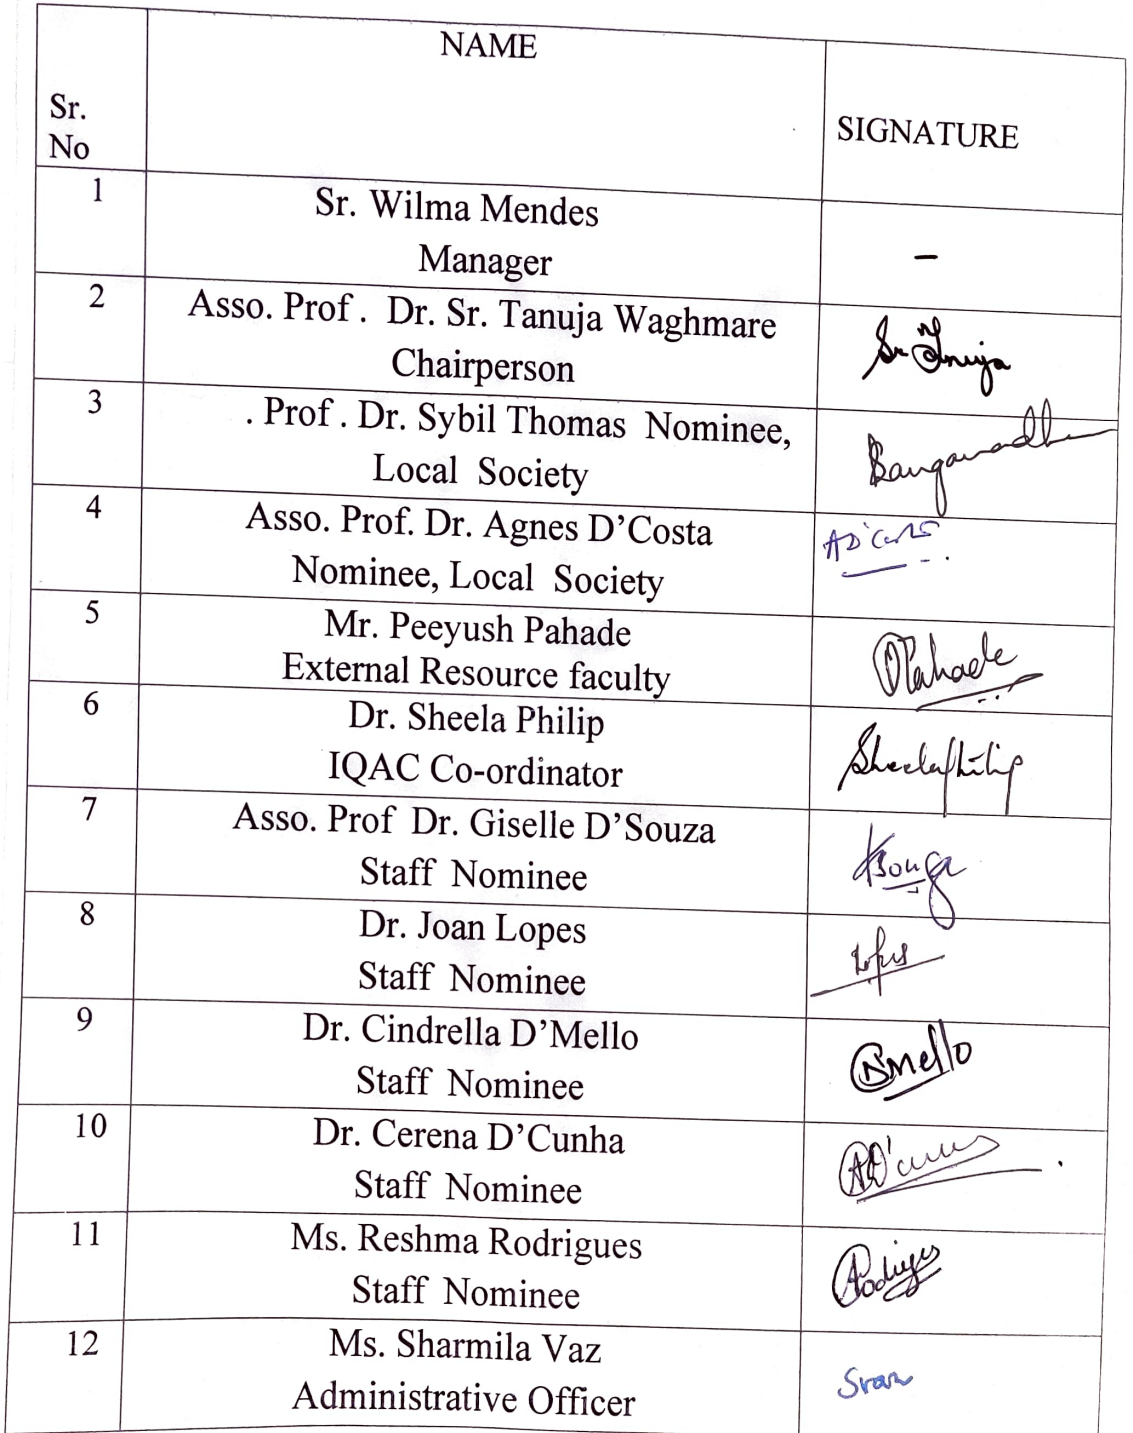 NAME
Sr.
No
SIGNATURE
1
Sr. Wilma Mendes
Manager
–
2
Asso. Prof . Dr. Sr. Tanuja Waghmare
Chairperson
Sr Tanuja
3
. Prof . Dr. Sybil Thomas Nominee,
Local Society
4
Asso. Prof. Dr. Agnes D’Costa
Nominee, Local Society
AD'Costa
5
Mr. Peeyush Pahade
External Resource faculty
PPahade
6
Dr. Sheela Philip
IQAC Co-ordinator
Sheelaphilip
7
Asso. Prof Dr. Giselle D’Souza
Staff Nominee
8
Dr. Joan Lopes
Staff Nominee
Lopes
9
Dr. Cindrella D’Mello
Staff Nominee
10
Dr. Cerena D’Cunha
Staff Nominee
11
Ms. Reshma Rodrigues
Staff Nominee
12
Ms. Sharmila Vaz
Administrative Officer
Svaz